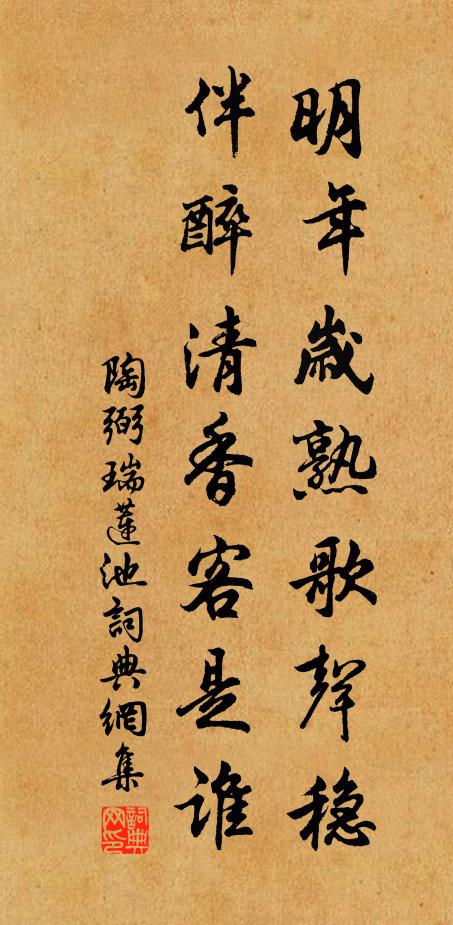 明年歲熟歌聲穩
伴醉清香客是誰
陶弼瑞蓮池詞典網集
詞典网印